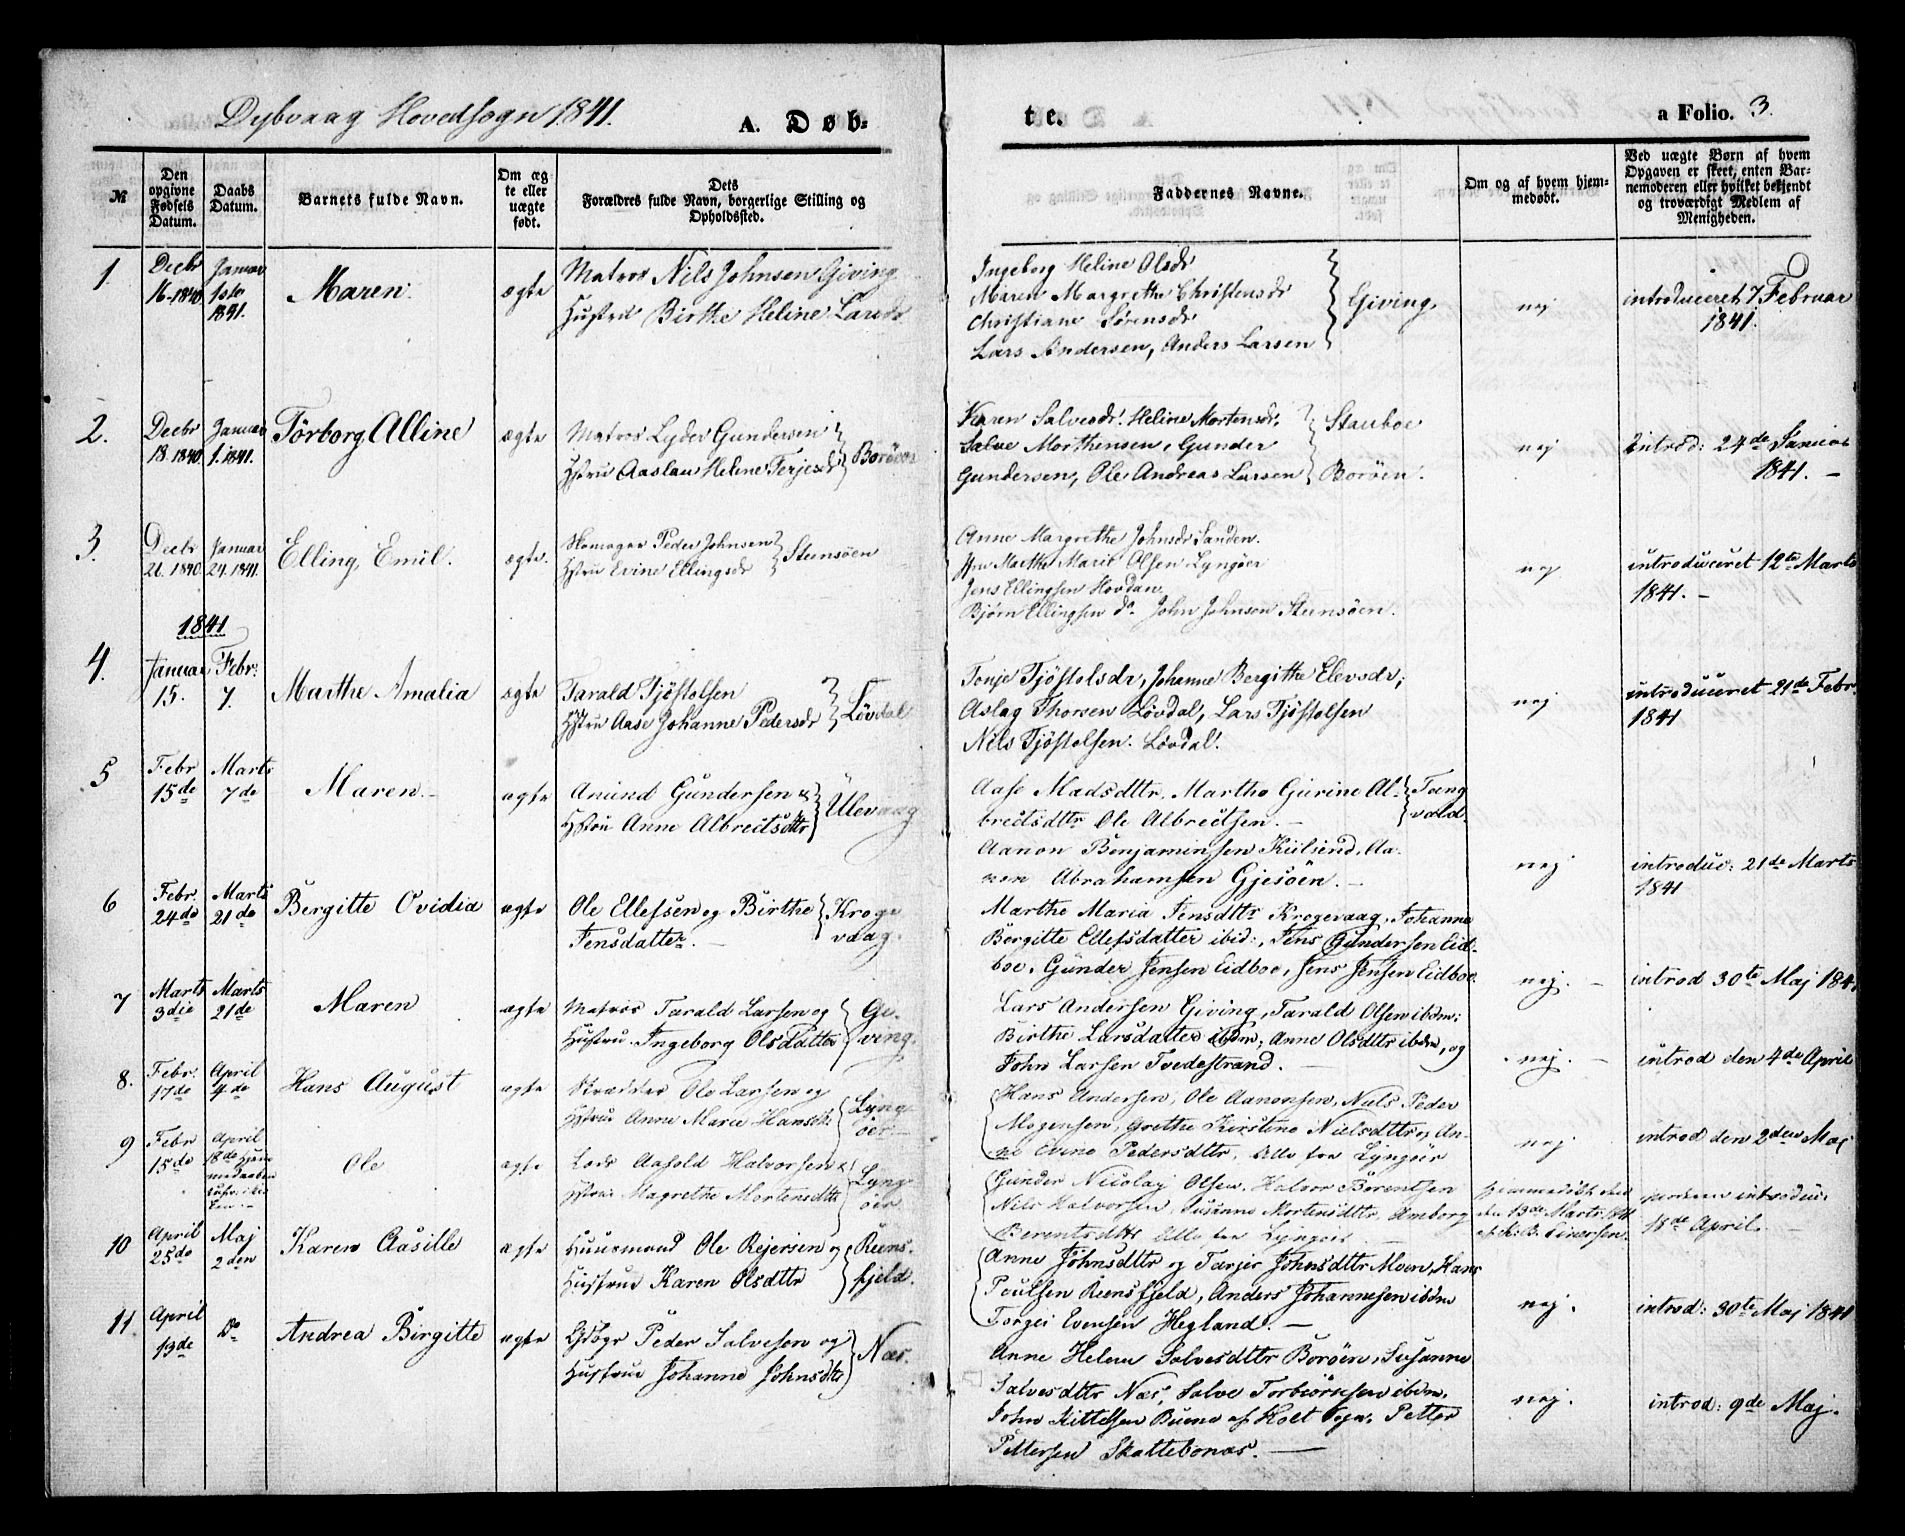 Dybvaag Hovedsogn 1841.
A. Døb-
te.
a Folio. 3.
№
Den opgivne Fødsels Datum.
Daabs Datum.
Barnets fulde Navn.
Om æg te eller uægte født.
Dets Forældres fulde Navn, borgerlige Stilling og Opholdssted.
Faddernes Navne.
Om og af hvem hjem-
medøbt.
Ved uægte Børn af hvem
Opgaven er skeet, enten Bar-
nemoderen eller hvilket bekjendt
og troværdigt Medlem af
Menigheden.
1
Decbr
16-1840.
Januar
1ste
1841.
Maren.
ægte
Matros Nils Johnsen Giving
Hustru Birthe Heline Larsdr
Ingeborg Heline Olsdr
Maren Margrethe Christensdr
Christiane Sørensdr
Lars Andersen, Anders Larsen
Giving,
nej
introduceret 7 Februar
1841.
2.
Decbr
18. 1840.
Januar
1. 1841.
Torborg Alline
ægte
Matros Lyder Gundersen
Hstru Aaslau Helene Terjesdr
Borøen
Karen Salvesdr. Heline Mortensdr.
Salve Morthensen, Gunder
Gundersen, Ole Andreas Larsen
Stauboe
Borøen.
nej
introd: 24de Januar
1841. -
3.
Decbr
21. 1840.
Januar
24. 1841.
Elling Emil.
ægte.
Peder Johnsen
Hstru Evine Ellingsdr
Stensøen
Anne Margrethe Johnsdr Sanden.
Marthe Marie Olsen Lyngøer
Jens Ellingsen Hovdan.
Bjørn Ellingsen do. John Johnsen Stensøen.
nej
introduceret 12te Marts
1841. -
1841
4.
Januar
15.
Febr:
7.
Marthe Amalia
ægte
Tarald Tjøstolsen
Hstru Aase Johanne Pedersdr
Løvdal
Tonje Tjøstolsdr, Johanne Bergithe Elevsdr,
Aslag Thorsen Løvdal, Lars Tjøstolsen
Nils Tjøstolsen. Løvdal.
nej
introduceret 21de Febr.
1841
5
Febr
15de
Marts
7de
Maren. -
ægte
Anund Gundersen &
Hstru Anne Albretsdttr
Ulevaag
Aase Madsdttr, Marthe Gurine Al-
bretsdttr Ole Albretsen. -
Tveng
vold.
Aanon Benjaminsen Kilsund, Aa-
non Abrahamsen Gjesøen. -
nej
introduc: 21de Marts
1841
6
Febr.
24de
Marts
21de
Bergitte Ovidia
ægte
Ole Ellefsen og Birthe
Jensdatter. -
Kroge
vaag.
Marthe Maria Jensdttr Krogevaag, Johanne
Børgitte Ellefsdatter ibid:, Jens Gundersen Eid-
boe, Gunder Jensen Eidboe, Jens Jensen Eidboe.
nej. -
introd 30te Maj 1841
7
Marts
3die
Marts
21de
Maren
ægte
Matros Tarald Larsen og
Hustru Ingeborg Olsdatter
Gi-
ving.
Lars Andersen Giving, Tarald Olsen ibdm:
Birthe Larsdatter ibdm, Anne Olsdttr ibdm, og
John Larsen Tvedestrand. -
nej. -
introd den 4de April
8.
Febr.
17de
April
4de
Hans August
ægte
Skrædder Ole Larsen og
Hstru Anne Marie Hansdtr
Lyng-
øer -
Hans Andersen, Ole Aanonsen, Niels Peder
Mogensen, Grethe Kirstine Nielsdttr og An-
ne Evine Pedersdttr. Alle fra Lyngøer
nej
introd den 2den Maj
9
Febr
15de
April
18de
Ole
ægte
Lods Aasold Halvorsen &
Hstru Magrethe Mortensdttr
Lyng-
øer
Gunder Nicolay Olsen, Halvor Børentsen
Nils Halvorsen, Susanne Mortensdttr, Amborg
Berentsdttr Alle fra Lyngøer -
hjemmedøbt
den 13de Marts
Einersen.
introduc:
18de April. -
10
April
25de
Maj
2den
Karen Aasille
ægte
Huusmand Ole Rejersen og
Hustrue Karen Olsdttr
Reens-
fjeld.
Anne Johnsdttr og Tarjer Johnsdttr Moen, Hans
Poulsen Reensfjeld, Anders Johannesen ibdm
Torgei Evensen Hegland. -
nej.
introd: 30te Maj 1841
11
April
13de
Do
Andrea Birgitte
ægte
Peder Salvesen og
Hustrue Johanne Johnsdtr
Næs.
Anne Helene Salvesdttr Borøen, Susanne
Salvesdttr Næs, Salve Torbiørnsen ibdm,
John Kittelsen Buene af Holt Sogn, Petter
Pettersen Skattebonæs. -
nej.
introd: 9de Maj.